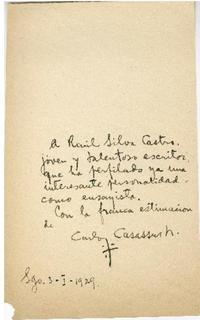 A Raúl Silva Castro,
joven y talentoso escritor,
que ha perfilado ya una
interesante personalidad
como ensayista.
Con la franca estimacion
de
Carlos Casassus
Sgo. 3-I-1929.